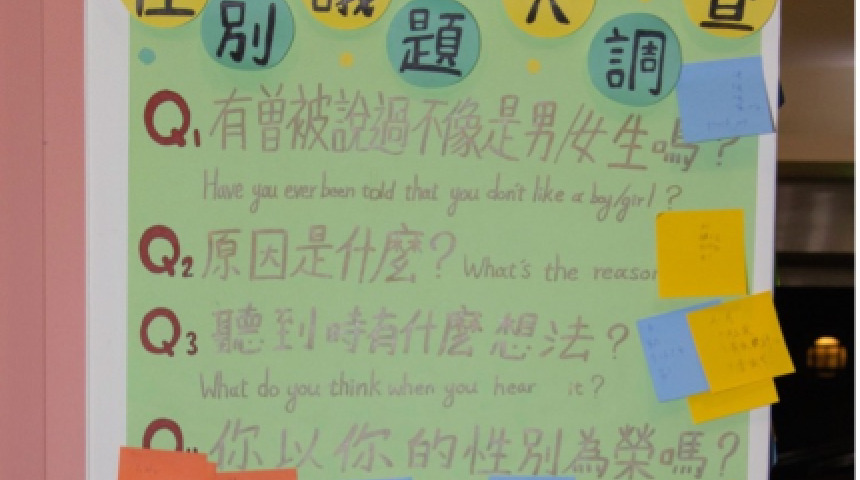 性別議題大調查
Q1 有曾被說過不像是男/女生嗎?
Have you ever been told that you don't like a boy/girl?
Q2 原因是什麼? What's the reason
Q3 聽到時有什麼想法?
What do you think when you hear it?
你以你的性別為榮嗎?